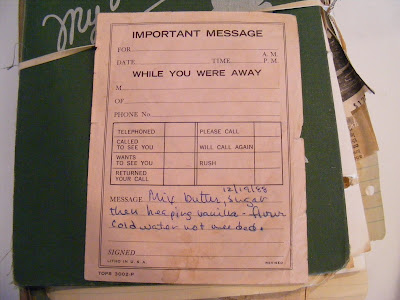 My
IMPORTANT MESSAGE
FOR
A. M.
DATE TIME P. M.
WHILE YOU WERE AWAY
M
OF
PHONE No.
TELEPHONED PLEASE CALL
CALLED TO SEE YOU WILL CALL AGAIN
WANTS TO SEE YOU RUSH
RETURNED YOUR CALL
12/19/88
MESSAGE Mix butter, sugar
then heaping vanilla - flour
Cold water not needed.
SIGNED
LITHO IN U.S.A.
TOPS 3002-P